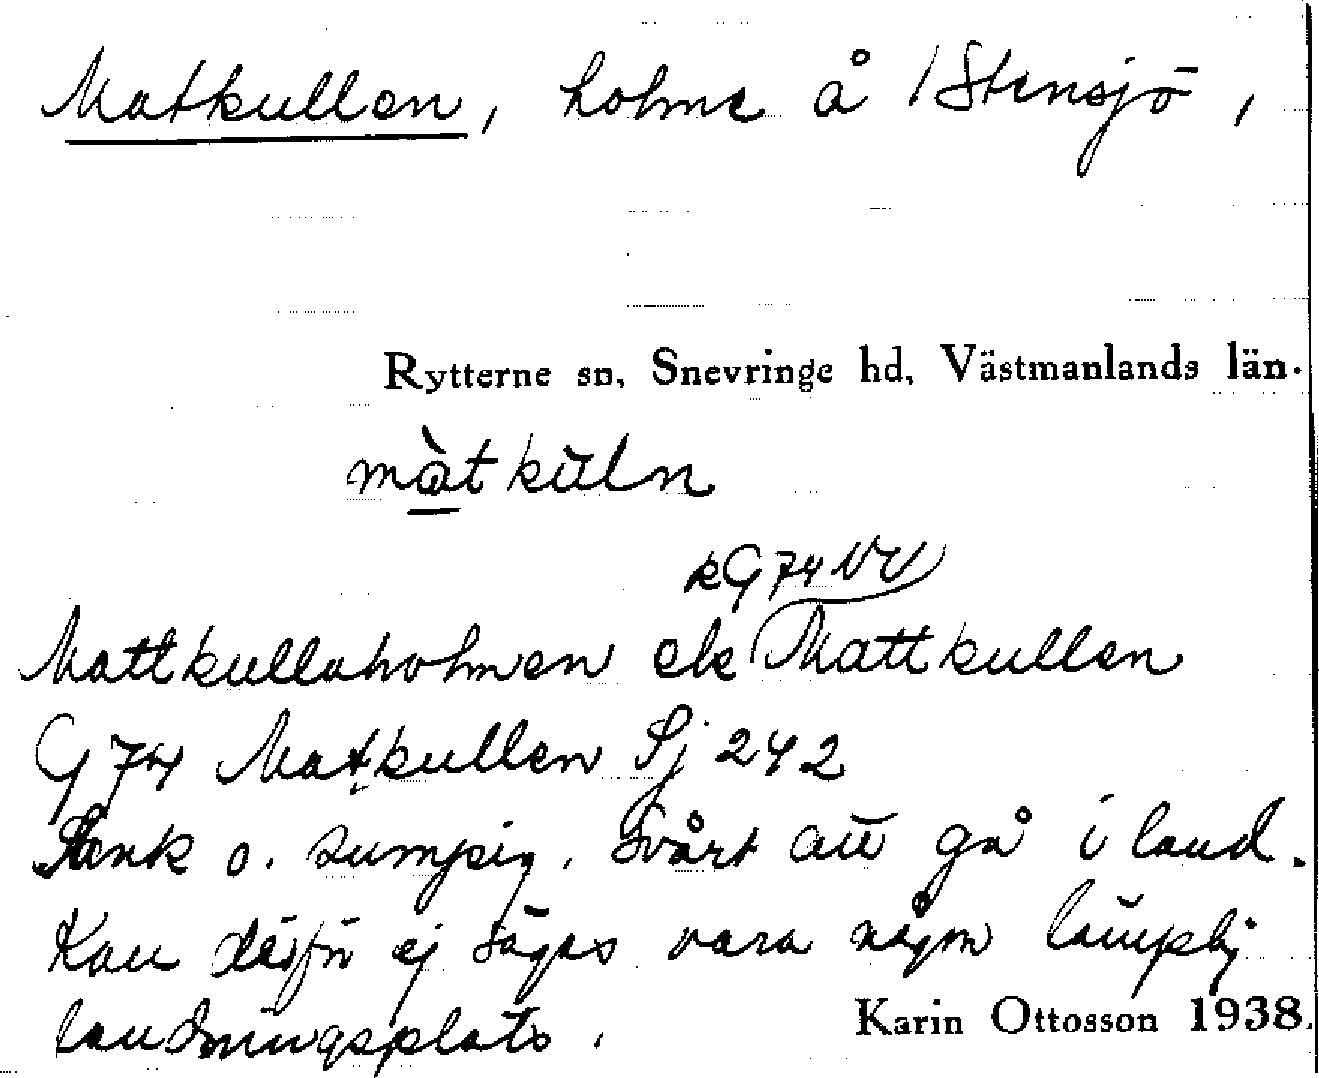 Matkullen, holme å 1 Stensjö,
Rytterne sn, Snevringe hd, Västmanlands län.
màtkŭln
kG74VV
Mattkullaholmen ek Mattkullen
G 74 Matkullen Sj 242
Sank o. sumpig. Svårt att gå i land.
Kan därför ej sägas vara någon lämplig
landningsplats.
Karin Ottosson 1938.